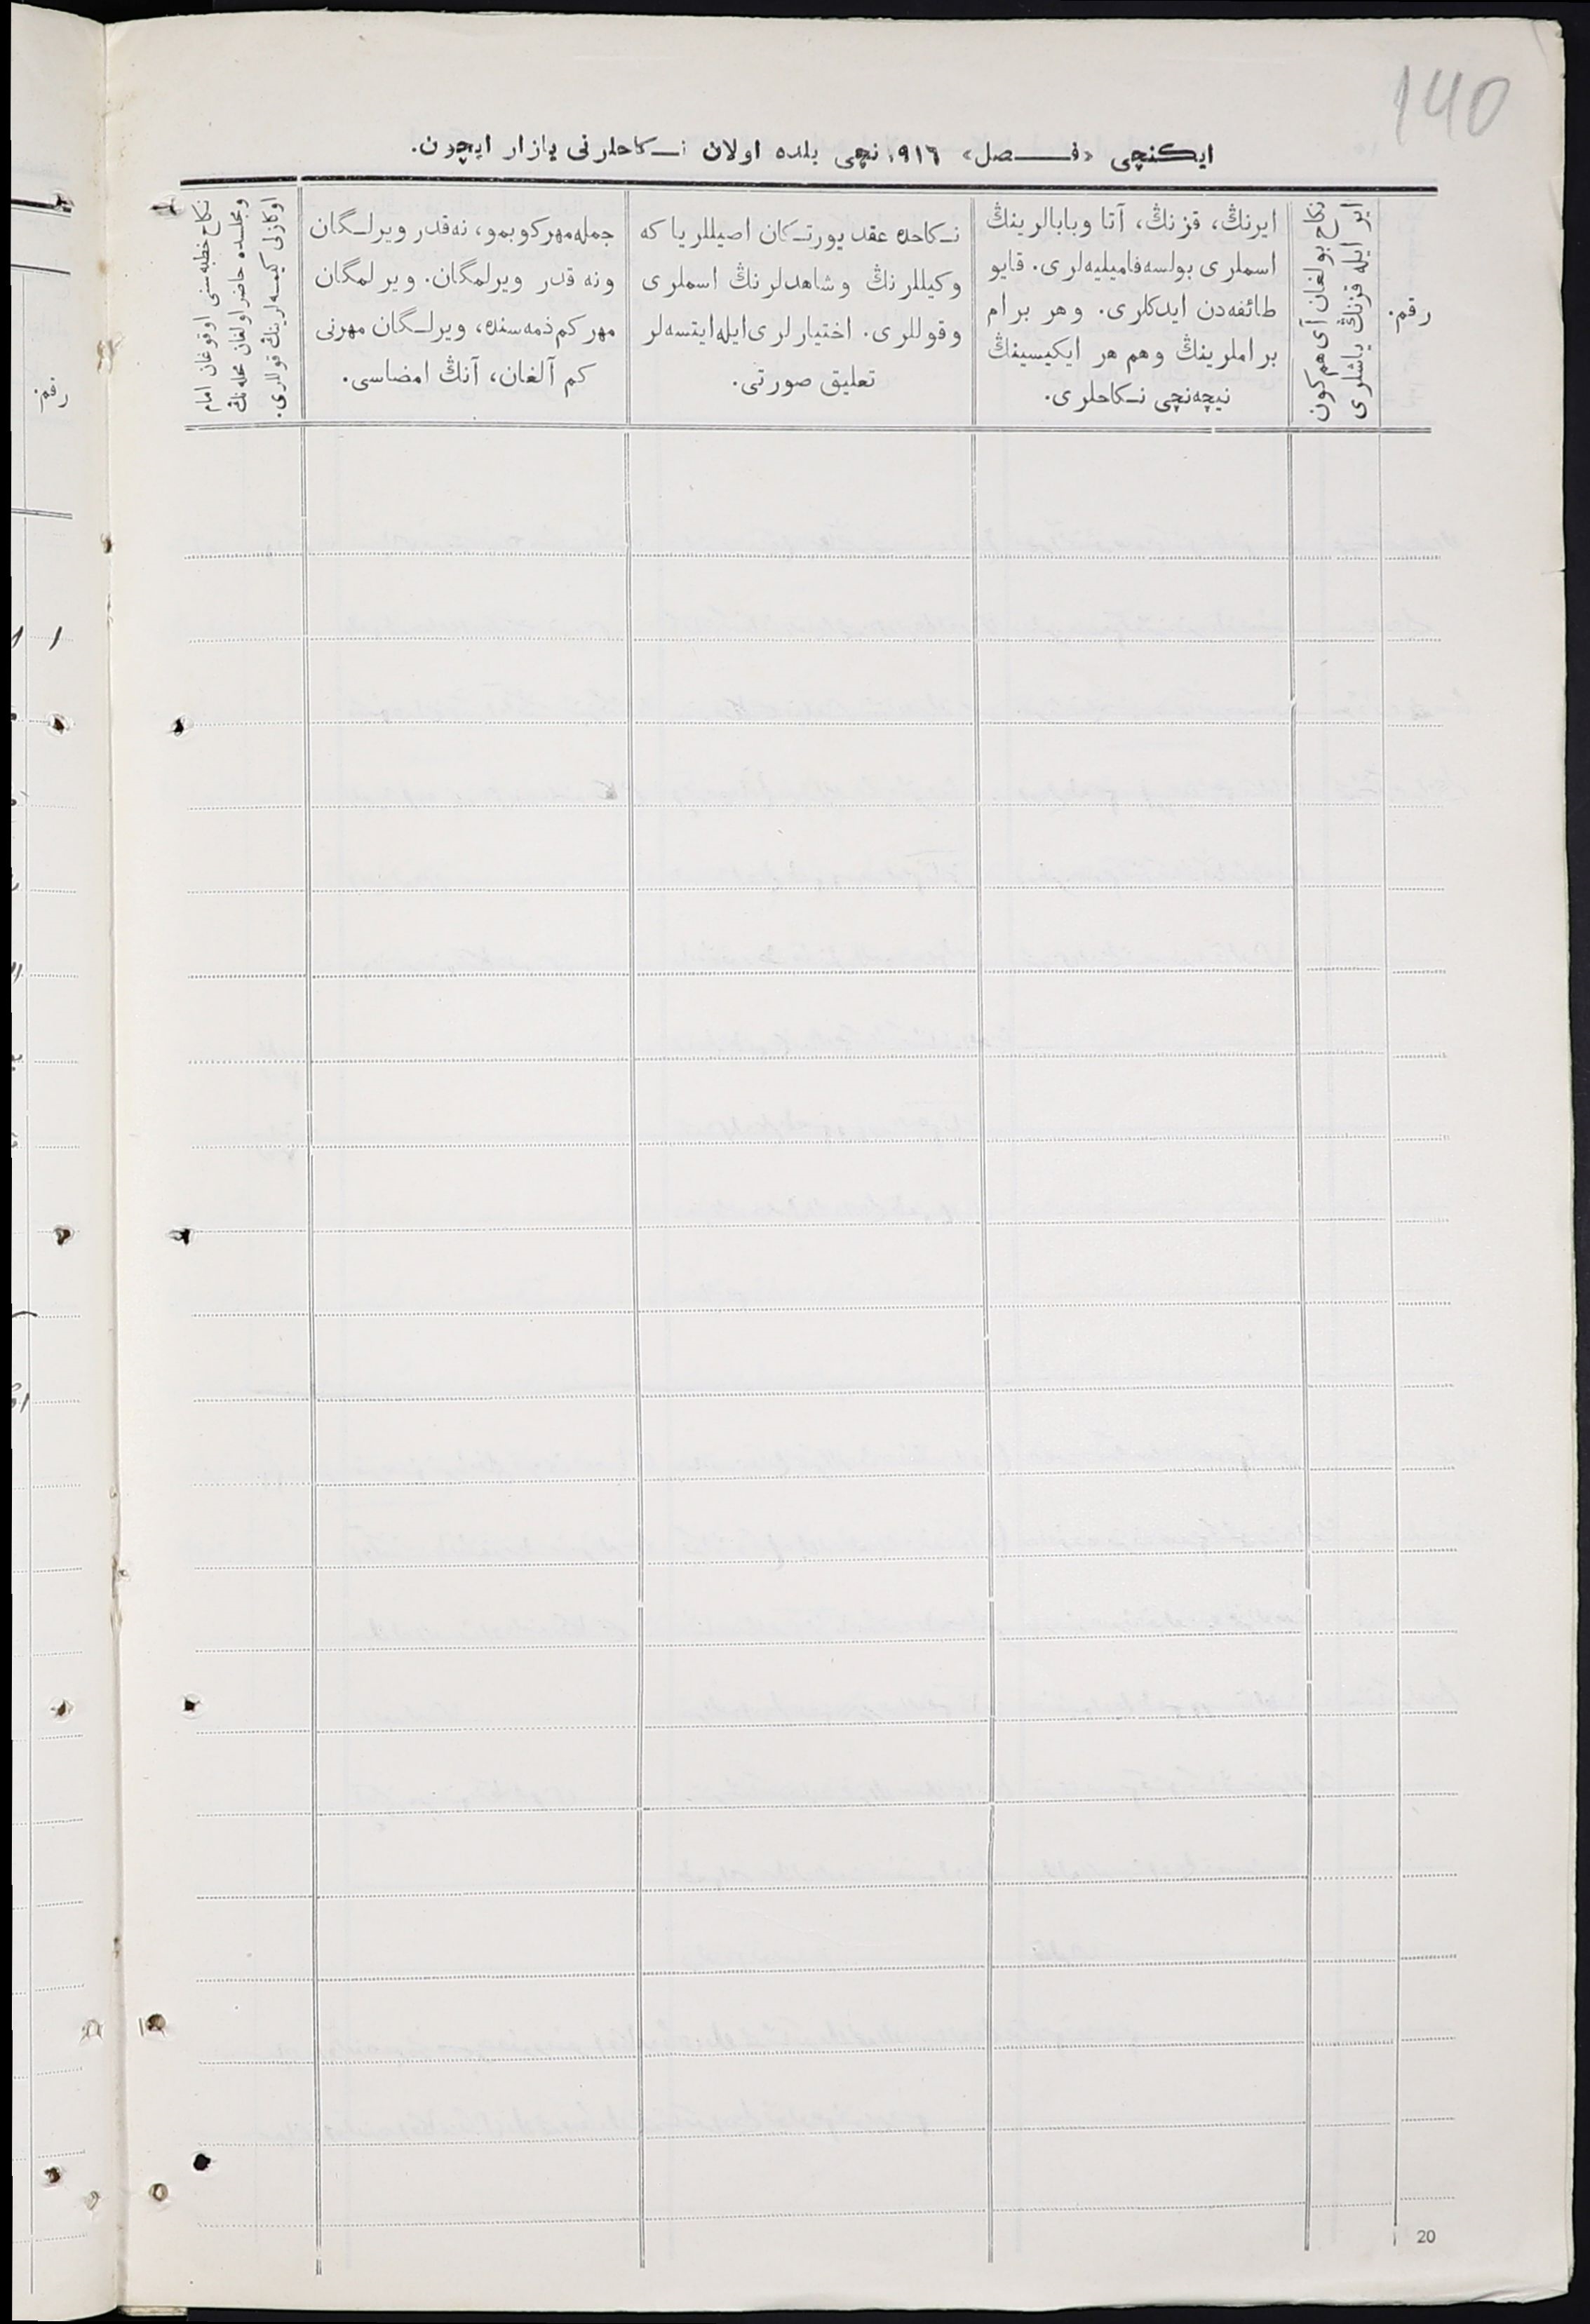 140
ایكنچی «فـــصل» ۹۱٦ نچی یلده اولان نـكاحلرنی یازار ایچون.
رقم.
ایر ایله قزنڭ یاشلری
نكاح بولغان آی هم كون
ایرنڭ، قزنڭ، آتا وبابالرینڭ
اسملری بولسه فامیلیه‌لری. قایو
طائفه‌دن ایدكلری. وهر برام
براملرینڭ وهم هر ایكیسینڭ
نیچه‌نچی نـكاحلری.
نـكاحده عقد یورتـكان اصیللر یا كه
وكیللرنڭ وشاهدلرنڭ اسملری
وقوللری. اختیارلری ایله ایتسه‌لر
تعلیق صورتی.
جمله مهر كوبمو، نه‌قدر ویرلـگان
ونه قدر ویرلمگان. ویرلمگان
مهر كم ذمه‌سنده، ویرلـگان مهرنی
كم آلغان، آنڭ امضاسی.
نكاح خطبه‌سنی اوقوغان امام
ومجلسده حاضر اولغان محله‌نڭ
اوكازلی كیمسه‌لرینڭ قوللری.
رقم.
۱
20